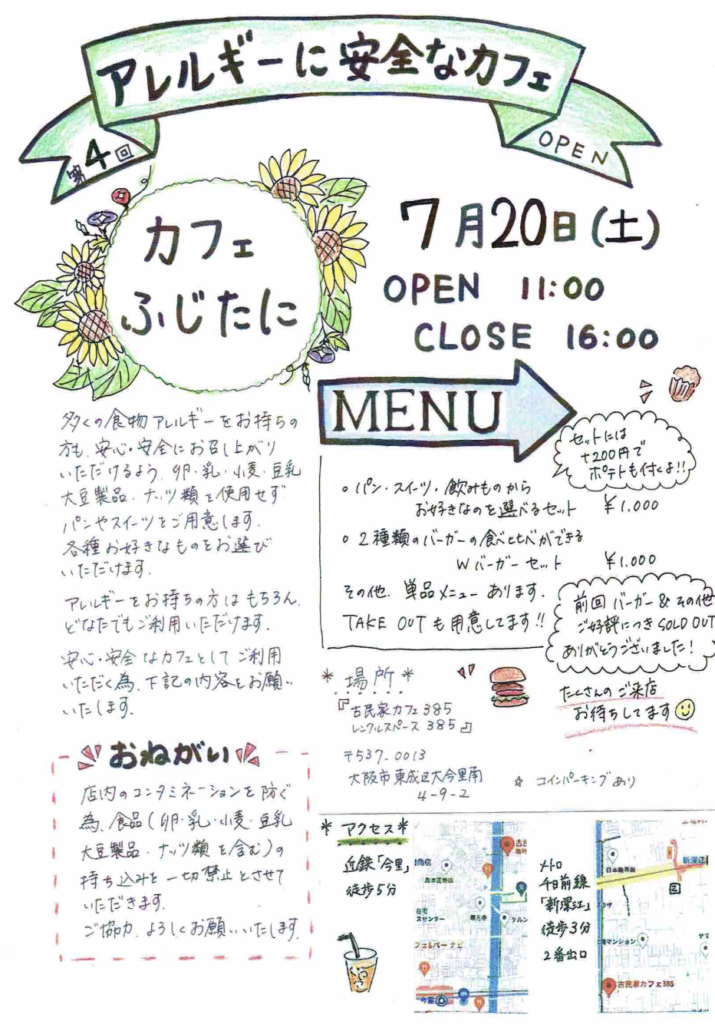 アレルギーに安全なカフェ
第4回
OPEN
カフェ
ふじたに
7月20日(土)
OPEN 11:00
CLOSE 16:00
MENU
セットには
+200円で
ポテトも付くよ!!
多くの食物アレルギーをお持ちの
方も、安心・安全にお召し上がり
いただけるよう、卵・乳・小麦・豆乳
大豆製品・ナッツ類を使用せず
パンやスイーツをご用意します。
各種お好きなものをお選び
いただけます。
アレルギーをお持ちの方はもちろん、
どなたでもご利用いただけます。
安心・安全なカフェとしてご利用
いただく為、下記の内容をお願い
いたします。
○パン・スイーツ・飲みものから
お好きなのを選べるセット ¥1.000
○2種類のバーガーの食べ比べができる
Wバーガーセット ¥1.000
その他、単品メニューあります。
TAKE OUTも用意してます!!
前回バーガー&その他
ご好評につきSOLD OUT
ありがとうございました!
たくさんのご来店
お待ちしてます
*場所*
『古民家カフェ385
レンタルスペース385』
〒537-0013
大阪市東成区大今里南
4-9-2
☆ コインパーキングあり
おねがい
店内のコンタミネーションを防ぐ
為、食品(卵・乳・小麦・豆乳
大豆製品・ナッツ類を含む)の
持ち込みを一切禁止とさせて
いただきます。
ご協力、よろしくお願いいたします。
*アクセス*
近鉄「今里」
徒歩5分
メトロ
千日前線
「新深江」
徒歩3分
2番出口
新深江
古民家カフェ385